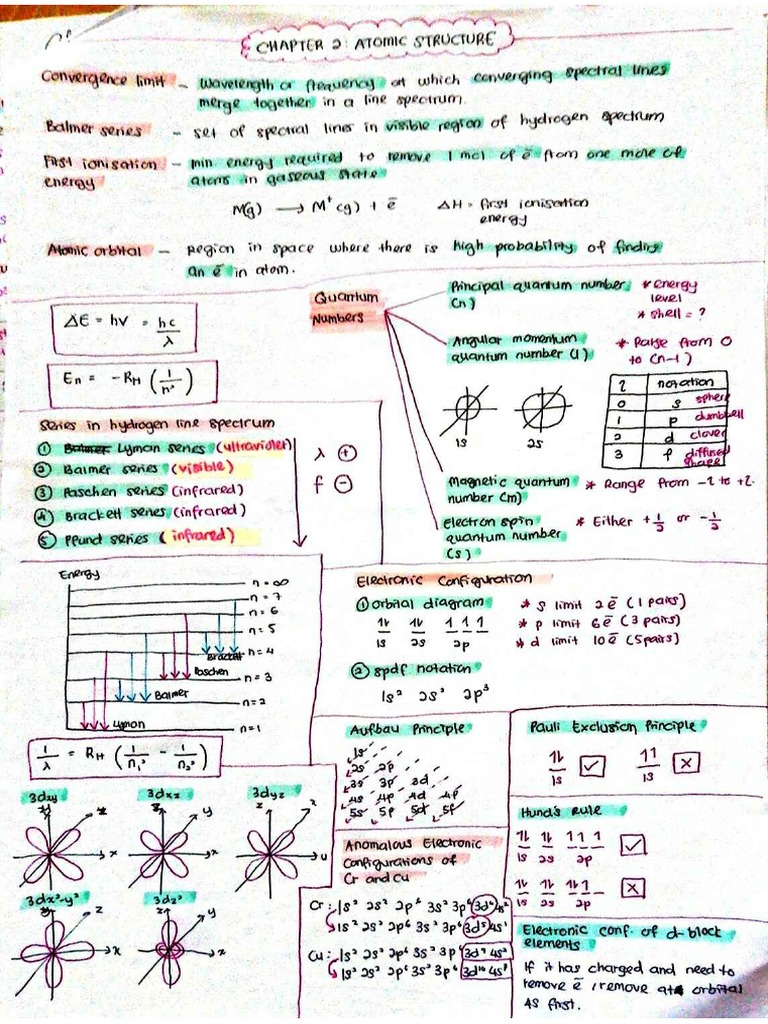 CHAPTER 2: ATOMIC STRUCTURE
Convergence limit – Wavelength or frequency at which converging spectral lines
merge together in a line spectrum.
Balmer series – set of spectral lines in visible region of hydrogen spectrum
First ionisation – min. energy required to remove 1 mol of ē from one mole of
energy atoms in gaseous state
M(g) → M⁺(g) + ē ΔH = first ionisation
energy
Atomic orbital – Region in space where there is high probability of finding
an ē in atom.
ΔE = hv = hc/λ
En = -RH (1/n²)
Quantum
Numbers
Principal quantum number * energy
(n) level
* shell = ?
Angular momentum * Range from 0
quantum number (l) to (n-1)
1s 2s
l notation
0 s sphere
1 p dumbbell
2 d clover
3 f diffused
shape
Magnetic quantum * Range from -l to +l
number (m)
Electron spin * Either +1/2 or -1/2
quantum number
(s)
Series in hydrogen line spectrum
① Balmer Lyman series (ultraviolet)
② Balmer series (visible)
③ Paschen series (infrared)
④ Brackett series (infrared)
⑤ Pfund series (infrared)
λ ⊕
f ⊖
Energy
n = ∞
n = 7
n = 6
n = 5
n = 4
Bracket
Paschen n = 3
Balmer n = 2
Lyman n = 1
1/λ = RH (1/n₁² - 1/n₂²)
Electronic Configuration
① orbital diagram
1s 2s 2p
* s limit 2ē (1 pairs)
* p limit 6ē (3 pairs)
* d limit 10ē (5pairs)
② spdf notation
1s² 2s² 2p³
Aufbau Principle
1s
2s 2p
3s 3p 3d
4s 4p 4d 4f
5s 5p 5d 5f
Pauli Exclusion Principle
1s 1s
Hund's Rule
1s 2s 2p
1s 2s 2p
Anomalous Electronic
Configurations of
Cr and Cu
Cr: 1s² 2s² 2p⁶ 3s² 3p⁶ 3d⁴ 4s²
1s² 2s² 2p⁶ 3s² 3p⁶ 3d⁵ 4s¹
Cu: 1s² 2s² 2p⁶ 3s² 3p⁶ 3d⁹ 4s²
1s² 2s² 2p⁶ 3s² 3p⁶ 3d¹⁰ 4s¹
Electronic conf. of d-block
elements
If it has charged and need to
remove ē, remove at orbital
4s first.
3dxy 3dxz 3dyz
x y z x
x x y
3dx²-y² 3dz²
z y
x x